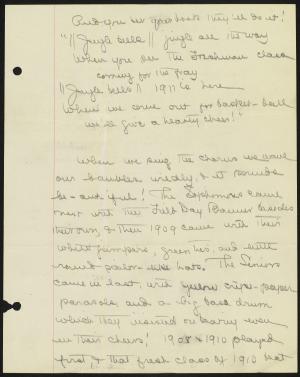 And you bet your boots they'll do it!
"||Jingle bells|| jingle all the way
When you see the Freshman class
coming for the fray
||Jingle bells|| 1911 is here
When we come out for basket-ball
we'll give a hearty cheer!"
When we sing the chorus we wave
our baubles wildly, & it sounds
be-autiful! The Sophomores came
next with the Field Day Banner besides
their own, & then 1909 came with their
white jumpers, green ties, and little
round sailor hats. The Seniors
came in last, with yellow crêpe-paper
parasols and a big bass drum
which they insisted on using even
in their cheers! 1908 & 1910 played
first, & that fresh class of 1910 beat